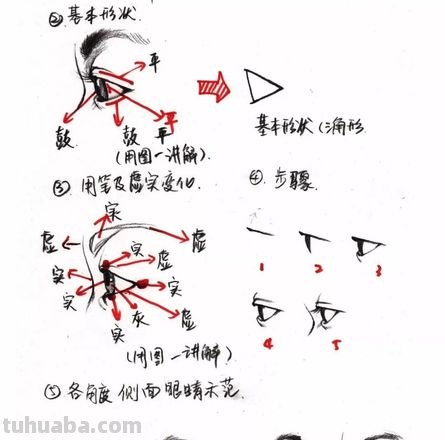 ② 基本形状
平
鼓 鼓 平
基本形状(三角形
(用图一讲解).
③ 用笔及虚实变化.
④. 步骤.
实
虚 虚
实 虚
实 实
实 实 灰 虚
1 2 3
4 5
(用图一讲解)
⑤ 各角度侧面眼睛示范.
tuhuaba.com